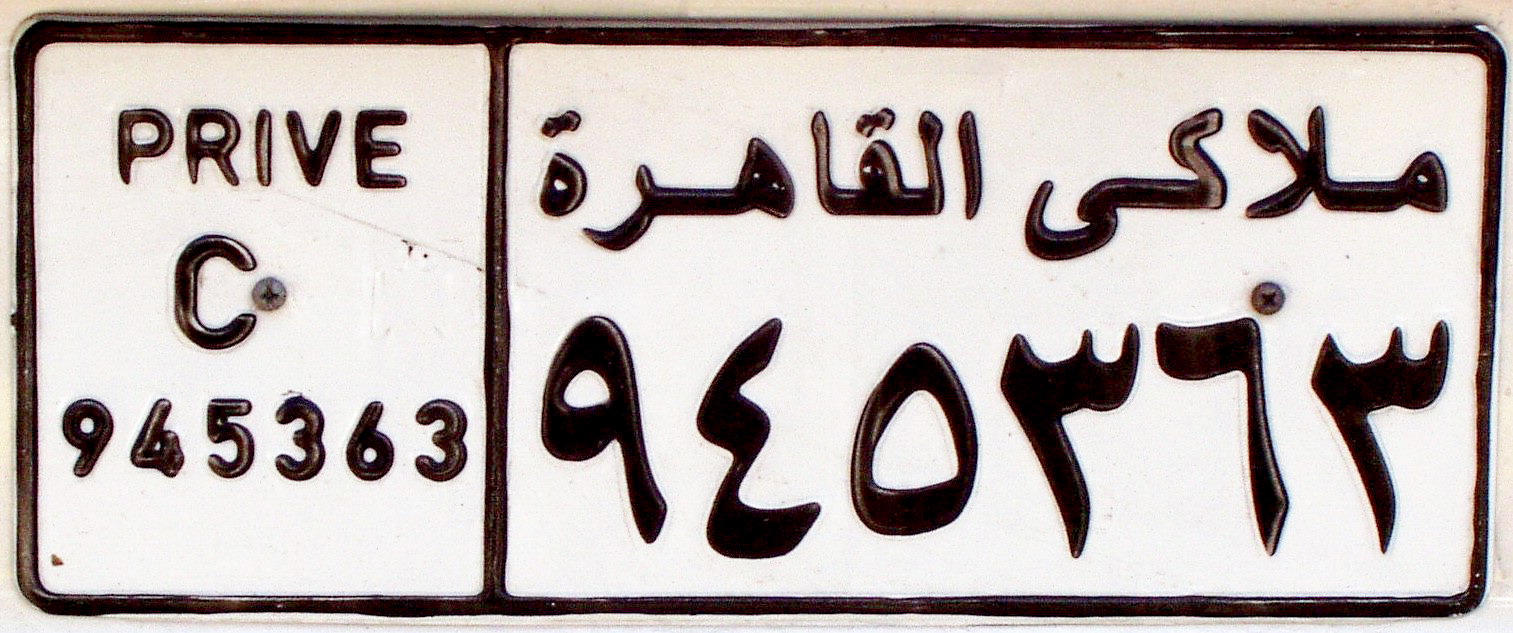 PRIVE
C
945363
ملاكى القاهرة
٩٤٥٣٦٣